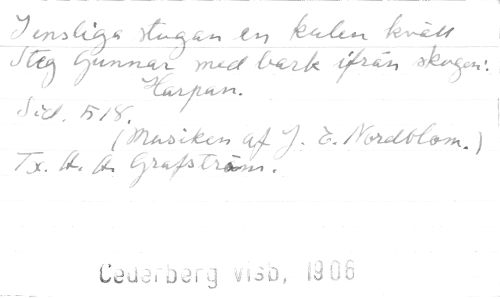 I ensliga stugan en kulen kväll
Steg Gunnar med bark ifrån skogen:
Harpan.
Sid. 518.
(Musiken af J. E. Nordblom.)
Tx. A. A. Grafström.
Cederberg visb, 1906